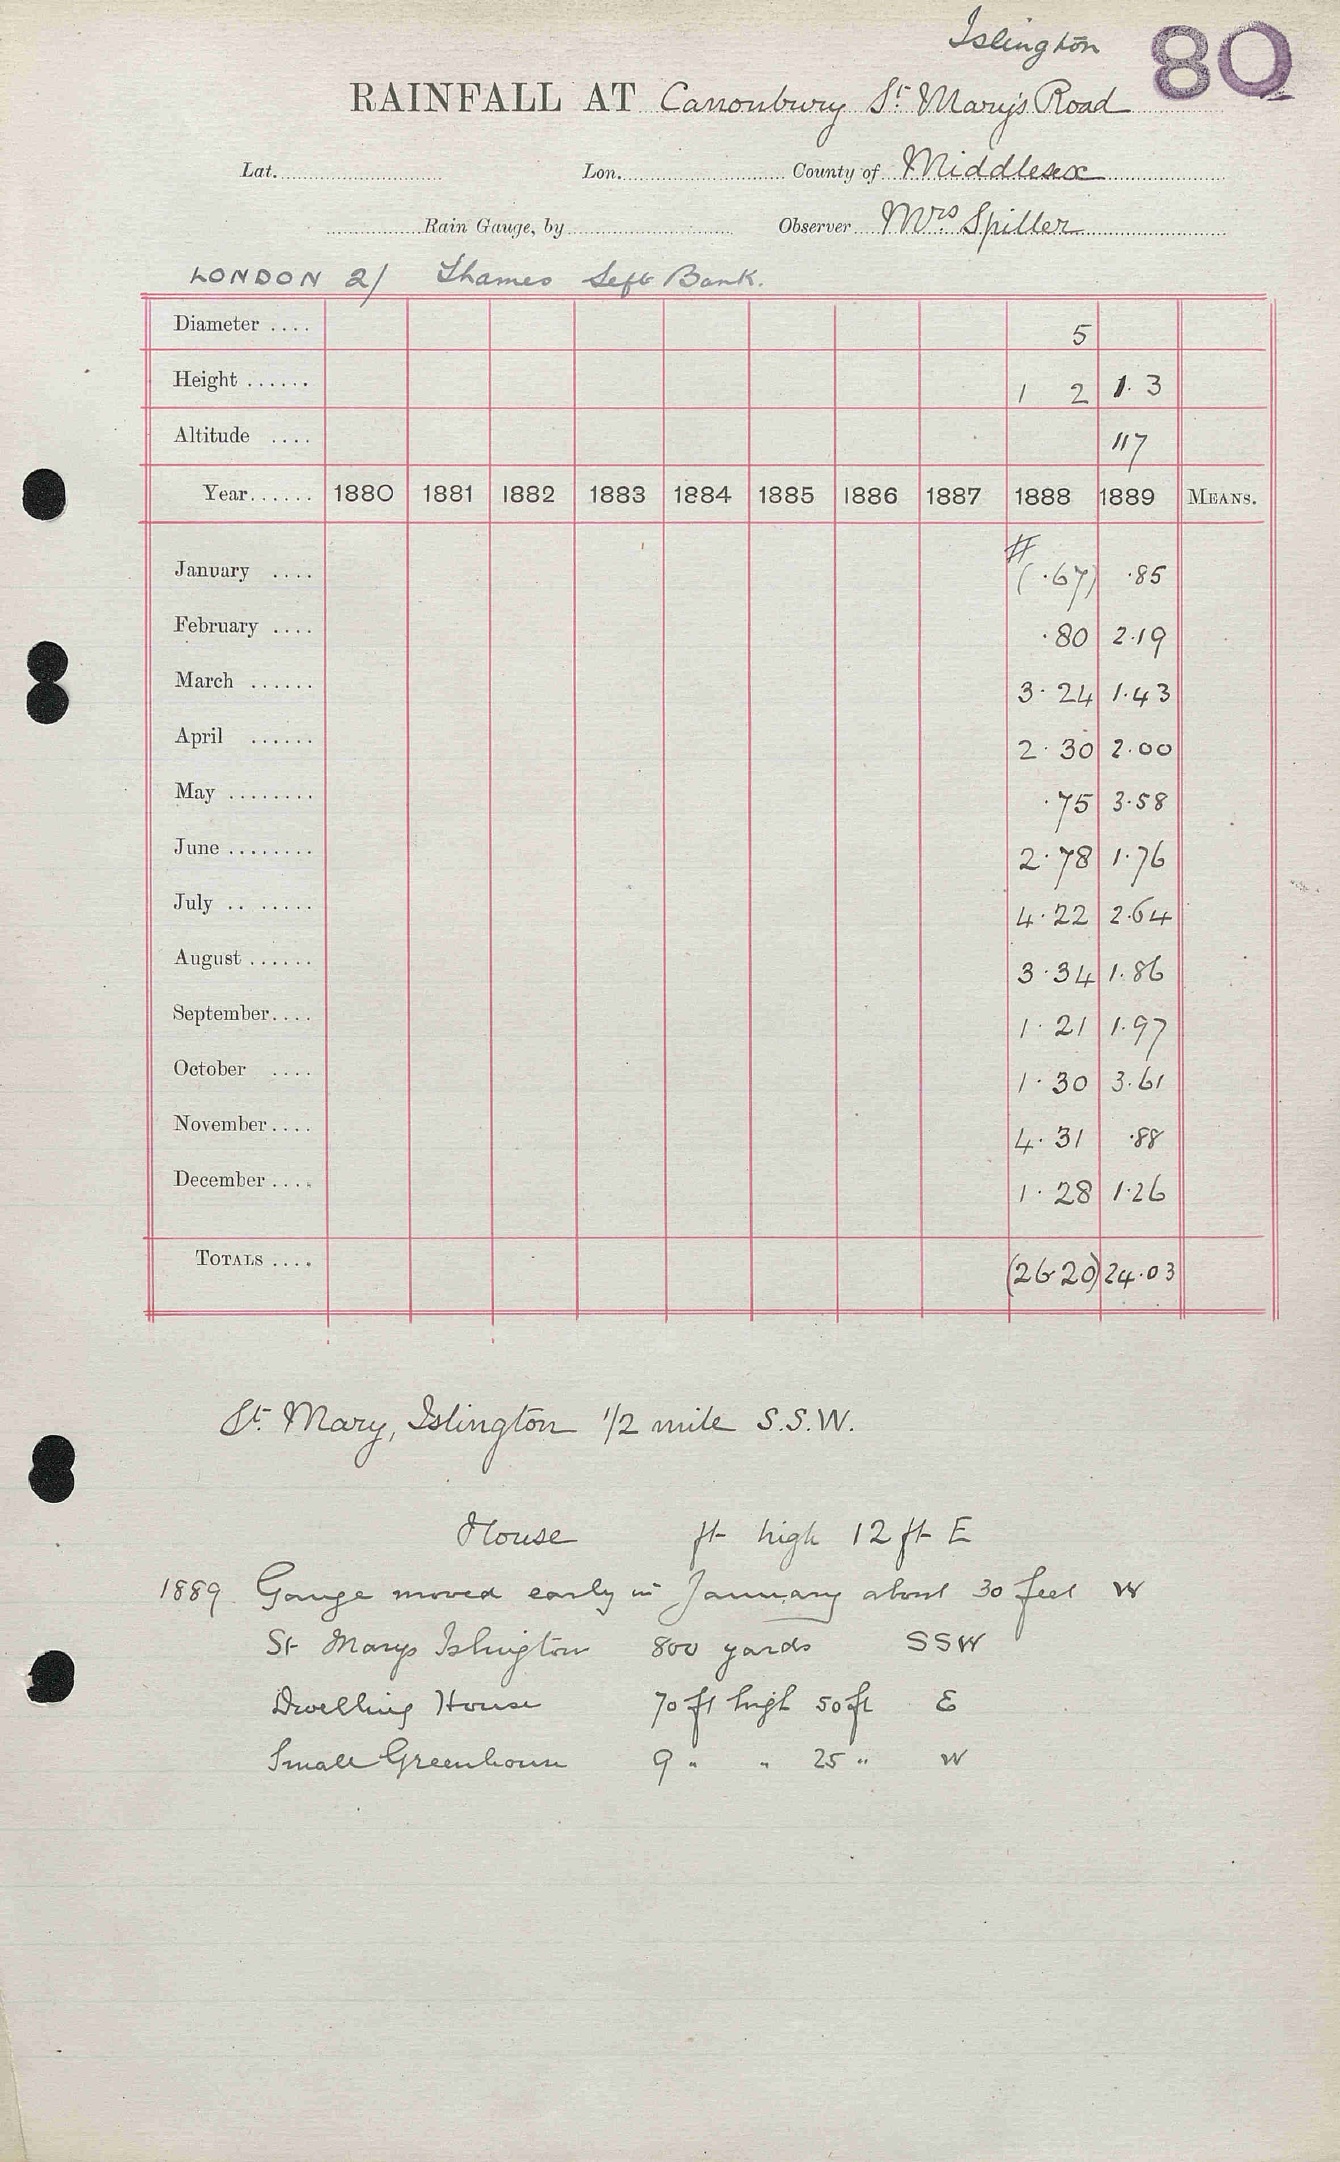 Islington 80
RAINFALL AT Canonbury St. Mary's Road
Lat. Lon. County of Middlesex
Rain Gauge, by Observer Mrs. Spiller
LONDON 2/ Thames Left Bank.
Diameter .... 5
Height ...... 1 2 1.3
Altitude .... 117
Year...... 1880 1881 1882 1883 1884 1885 1886 1887 1888 1889 MEANS.
#
January .... (.67) .85
February .... .80 2.19
March ...... 3.24 1.43
April ...... 2.30 2.00
May ........ .75 3.58
June ........ 2.78 1.76
July .. ..... 4.22 2.64
August ...... 3.34 1.86
September.... 1.21 1.97
October .... 1.30 3.61
November.... 4.31 .88
December.... 1.28 1.26
TOTALS .... (26.20) 24.03
St. Mary, Islington 1/2 mile S.S.W.
House ft high 12 ft E
1889 Gauge moved early in January about 30 feet W
St Marys Islington 800 yards SSW
Dwelling House 70 ft high 50 ft E
Small Greenhouse 9 " " 25 " W